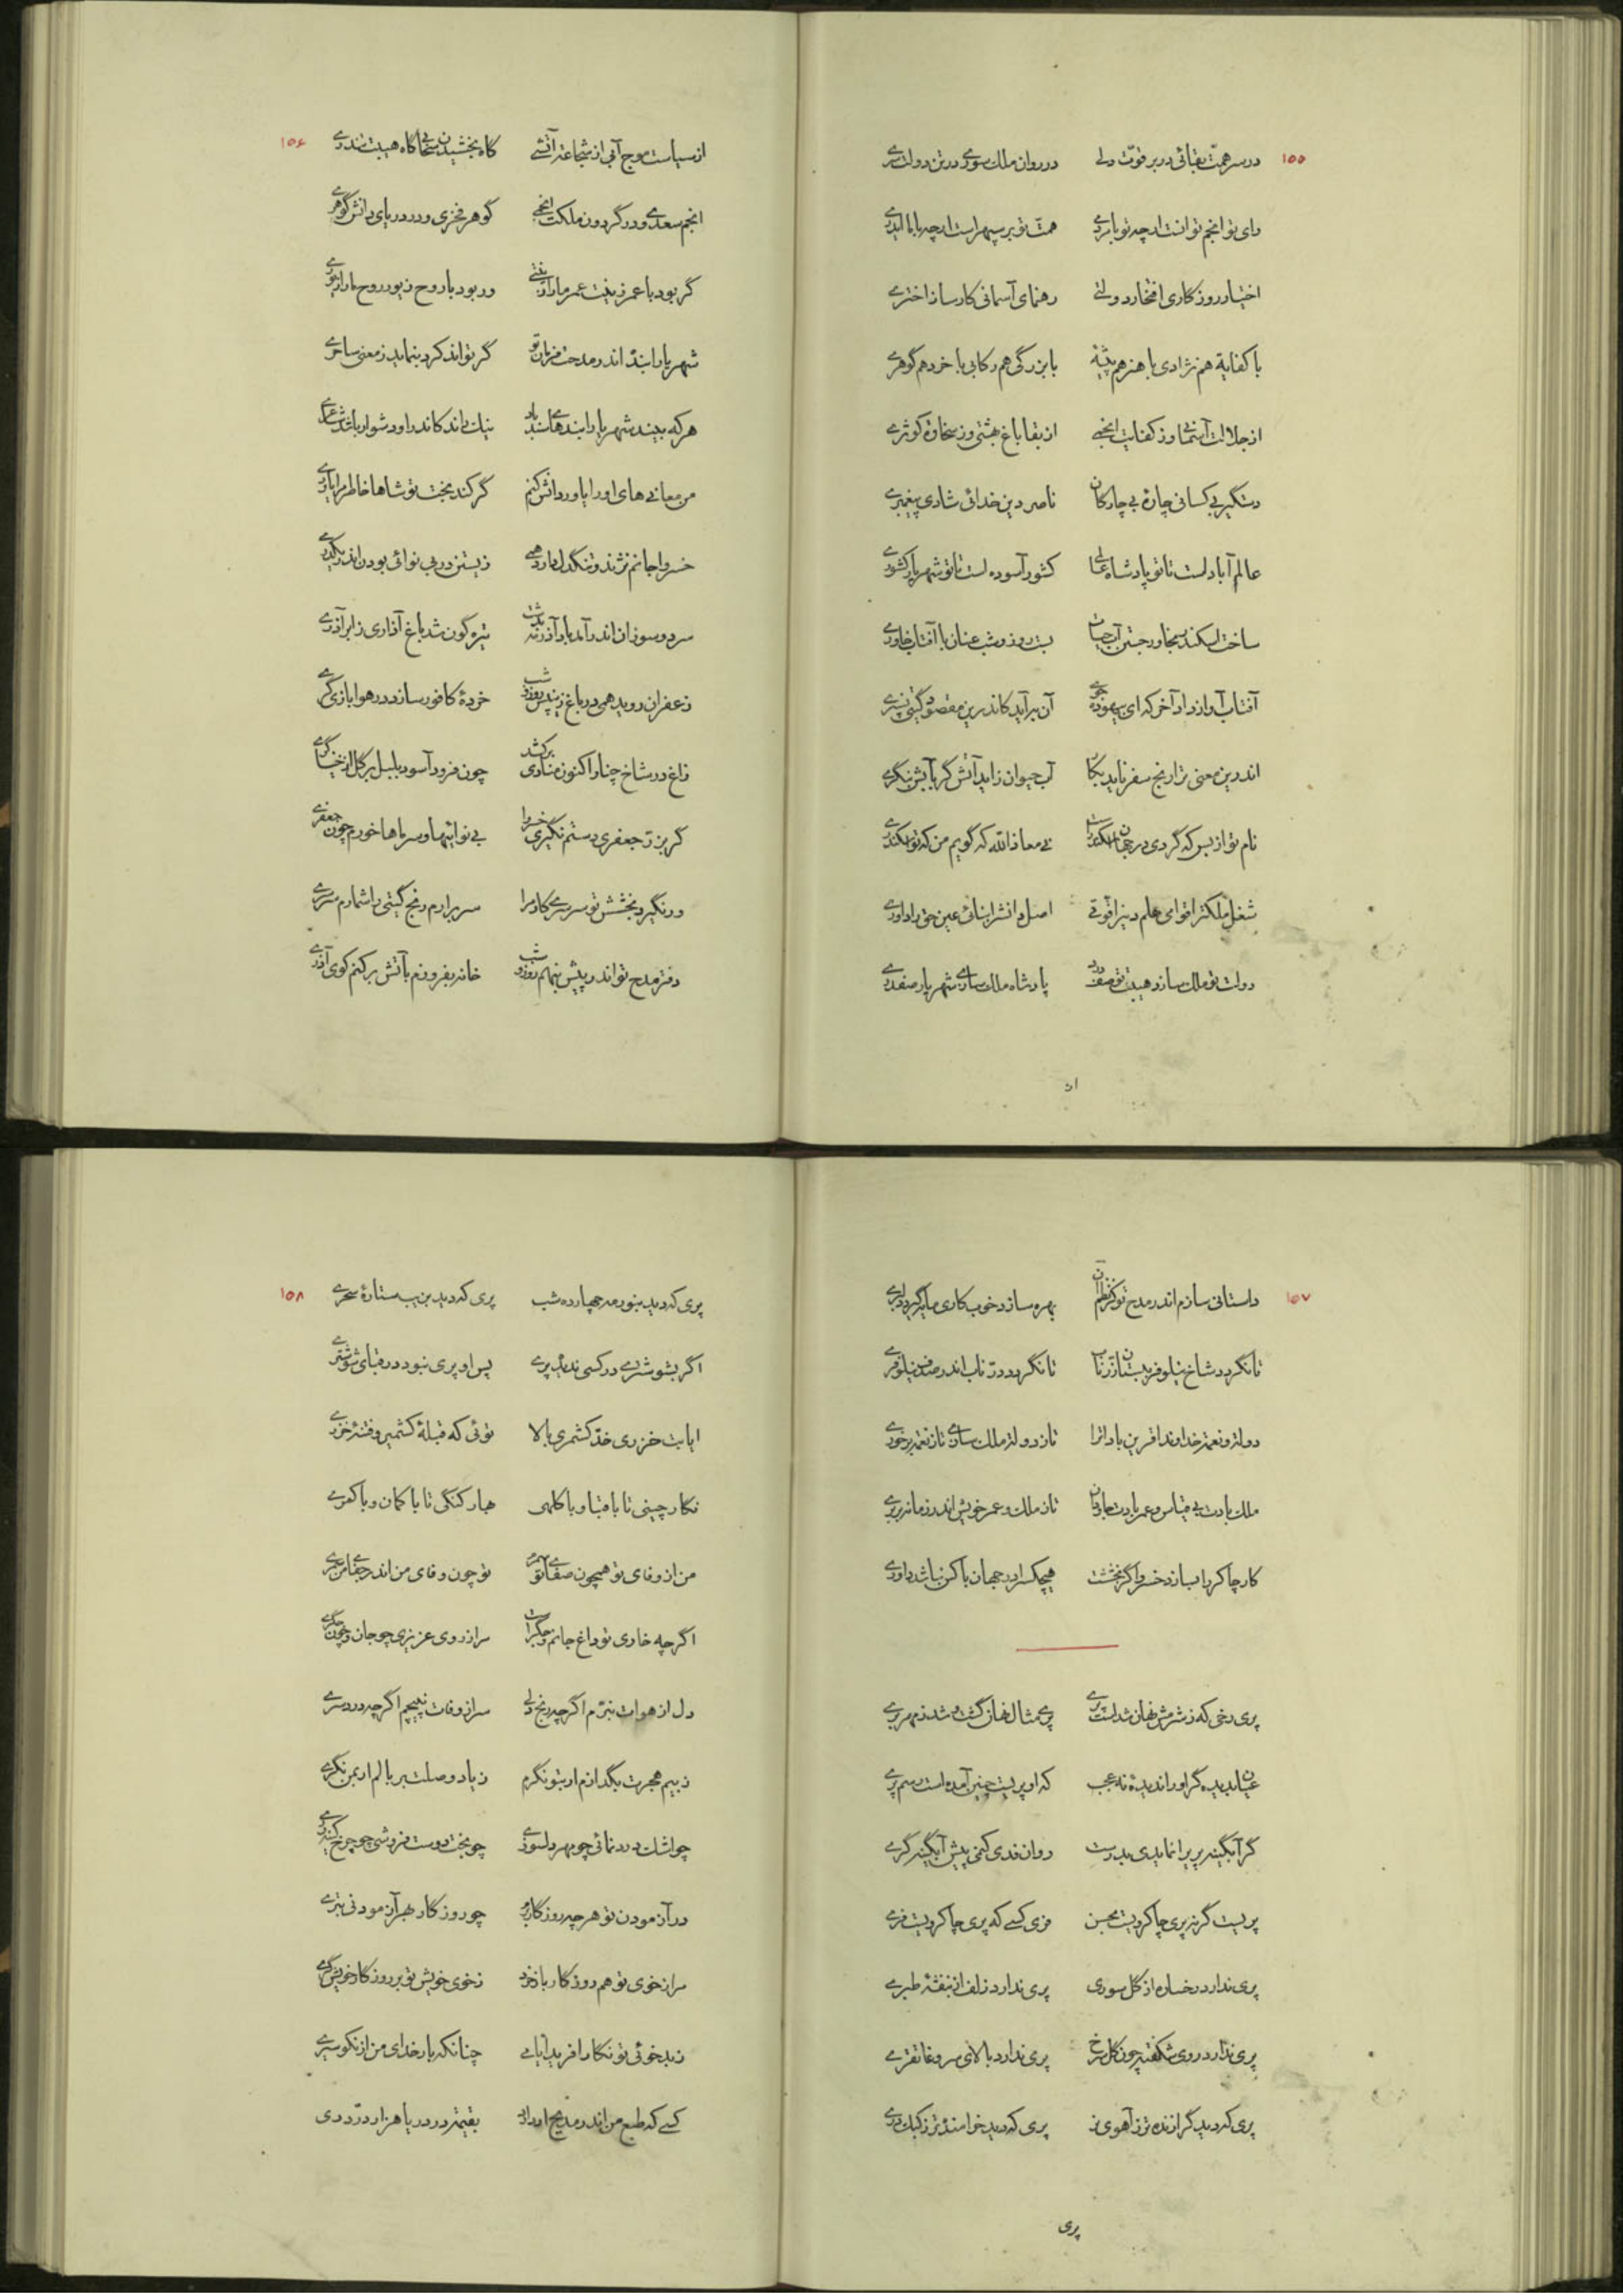 ۱۵۵
در سر همت بقائی در بر قوت دلی در روان ملک سودی در تن دولت سری
رای تو انجم توانست ارچه تو با مردمی همت تو بر سپهر است ارچه با ما ایدری
اختیار روزگاری افتخار دولتی رهنمای آسمانی کارساز اختری
با کفایة هم نژادی با هنر هم پیشهٔ با بزرگی هم رکابی با خرد هم گوهری
از جلالت آسمانی وز کفایت انجمی از بقا باغ بهشتی وز سخاوة کوثری
دستگیر بی کسانی چارهٔ بی چارگان ناصر دین خدائی شادی پیغمبری
عالم آباد است تا تو پادشاه عالمی کشور آسوده است تا تو شهریار کشوری
ساخت اسکندر بجاور جستن آب حیات بست روز و شب عنان با آفتاب خاوری
آفتاب آواز داد آخر که ای بیهوده جوی آن برآید کاندرین مقصود گیتی نسپری
اندرین معنی ترا رنج سفر ناید بکار آب حیوان زاید آتش گر بآبش بنگری
نام تو از بس که گردی در جهان اسکندرست نی معاذالله که گویم من که تو اسکندری
شغل ملکترا قوامی علم دینرا قوتی اصل دانشرا بنائی عین حق را داوری
دولت تو ملک سازد هیبت تو صف درد پادشاه ملک سازی شهریار صفدری
از
۱۵۶
از سیاست موج آبی از شجاعة آتشی گاه بخشیدن سخائی گاه هیبت تندری
انجم سعدی و در گردون ملکت انجمی گوهر فخری و در دریای دانش گوهری
گر بود با عمر زینت عمر ما را زینتی ور بود با روح زیور روح ما را زیوری
شهریارا بندهٔ اندر مدحت فرمان تو گر تواند کرد بنماید ز معنی ساحری
هر که بیند شهریارا بندهای سندباد نیک داند کاندر او دشوار باشد شاعری
من معانی های او را یاور دانش کنم گر کند بخت تو شاها خاطرم را یاوری
خسروا جانم نژند و تنگدل دارد همی زیستن در بی نوائی بودن اندر یکدری
سرد و سوزان اندر آمد باد آذر نه بدشت تیره گون شد باغ آذاری ز ابر آذری
زعفران روید همی در باغ زین پس روز و شب خردهٔ کافور سازد در هوا بازیگری
زاغ در شاخ چنار اکنون منادی برکشد چون فرود آسود بلبل بر گل از خنیاگری
گر بزرّ جعفری دستم نگیری خسروا بی نوائیها و سرماها خورم چون جعفری
ور نگیرد بخشش تو سرسری کار مرا سر برآرم رنج گیتی را شمارم سرسری
دفتر مدح تو اندر پیش بنهم روز و شب خانه بفروزم بآتش برکنم کوی آذری
۱۵۷
داستانی سازم اندر مدح تو کز نظم آن بهره سازد خوب کاری مایه گیرد دلبری
تا نگردد شاخ نیلوفر بستان زرّ ناب تا نگردد درّ ناب اندر صدف نیلوفری
دولة و نعمة خداوندا قرین باداترا تا ز دولة ملک سازی تا ز نعمة برخوری
ملک بادت بی قیاس و عمر بادت جاودان تا ز ملک و عمر خویش اندر زمانه بر بری
کار چاکر را بسازد خسروا گر بخششت هیچکس را در جهان با کس نباشد داوری
پری رخی که ز شرمش نهان شدست پری پری مثال نهان گشت و شد ز مهر بری
عیان ندیده گر او را ندیدهٔ نه عجب که او پریست چنین آمده است رسم پری
گر آبگینه پریرا نماندی بدرست روان فدی کنمی پیش آبگینه گری
پریست گر نه پری چاکرویست بحسن فری کسی که پری چاکرویست فری
پری ندارد رخساره از گل سوری پری ندارد زلف از بنفشهٔ طبری
پری ندارد روی شکفته چون گل سرخ پری ندارد بالای سرو غاتفری
پری که دید گرازنده تر ز آهوی نر پری که دید خرامنده تر ز کبک دری
پری
۱۵۸
پری که دید بنور مه چهارده شب پری که دید بزیب ستارهٔ سحری
اگر بشوشتری در کسی ندید پری پس او پری نبود در قبای شوشتری
ایا بت خزری خدّ کشمری بالا توئی که قبلهٔ کشمیر و فتنهٔ خزری
نگار چینی تا با قبا و با کلهی بهار گنگی تا با کمان و با کمری
من از وفای تو همچون صفای تو سمرم تو چون وفای من اندر جفای من سمری
اگرچه خاری تو داغ جانم و جگراست مرا ز روی عزیزی چو جان و چون جگری
دل از هوات نبرّم اگرچه رنج دلی سر از وفات نپیچم اگرچه دردسری
ز بیم هجرت بگدازم ار بتو نگرم ز یاد وصلت بر بالم ار بمن نگری
چو اشک درد نمائی چو مهر دلسوزی چو بخت دوست فروشی چو چرخ کینه وری
در آزمودن تو هرچه روزگار برد چو روزگار بهر آزمودنی بتری
مرا ز خوی تو هم روزگار باز خرد ز خوی خویش تو بر روزگار خویش گری
ز بدخوئی تو نگارا فریده ایزد چنانکه بار خدای من از نکو سیری
کسی که طبع من اندر مدیح او داند بقیمة درّ دریا هزار درّ دری